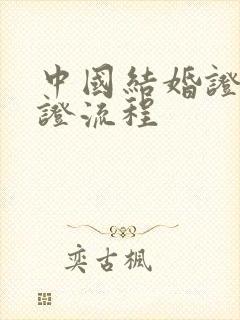 中國結婚證
證流程
奕古楓